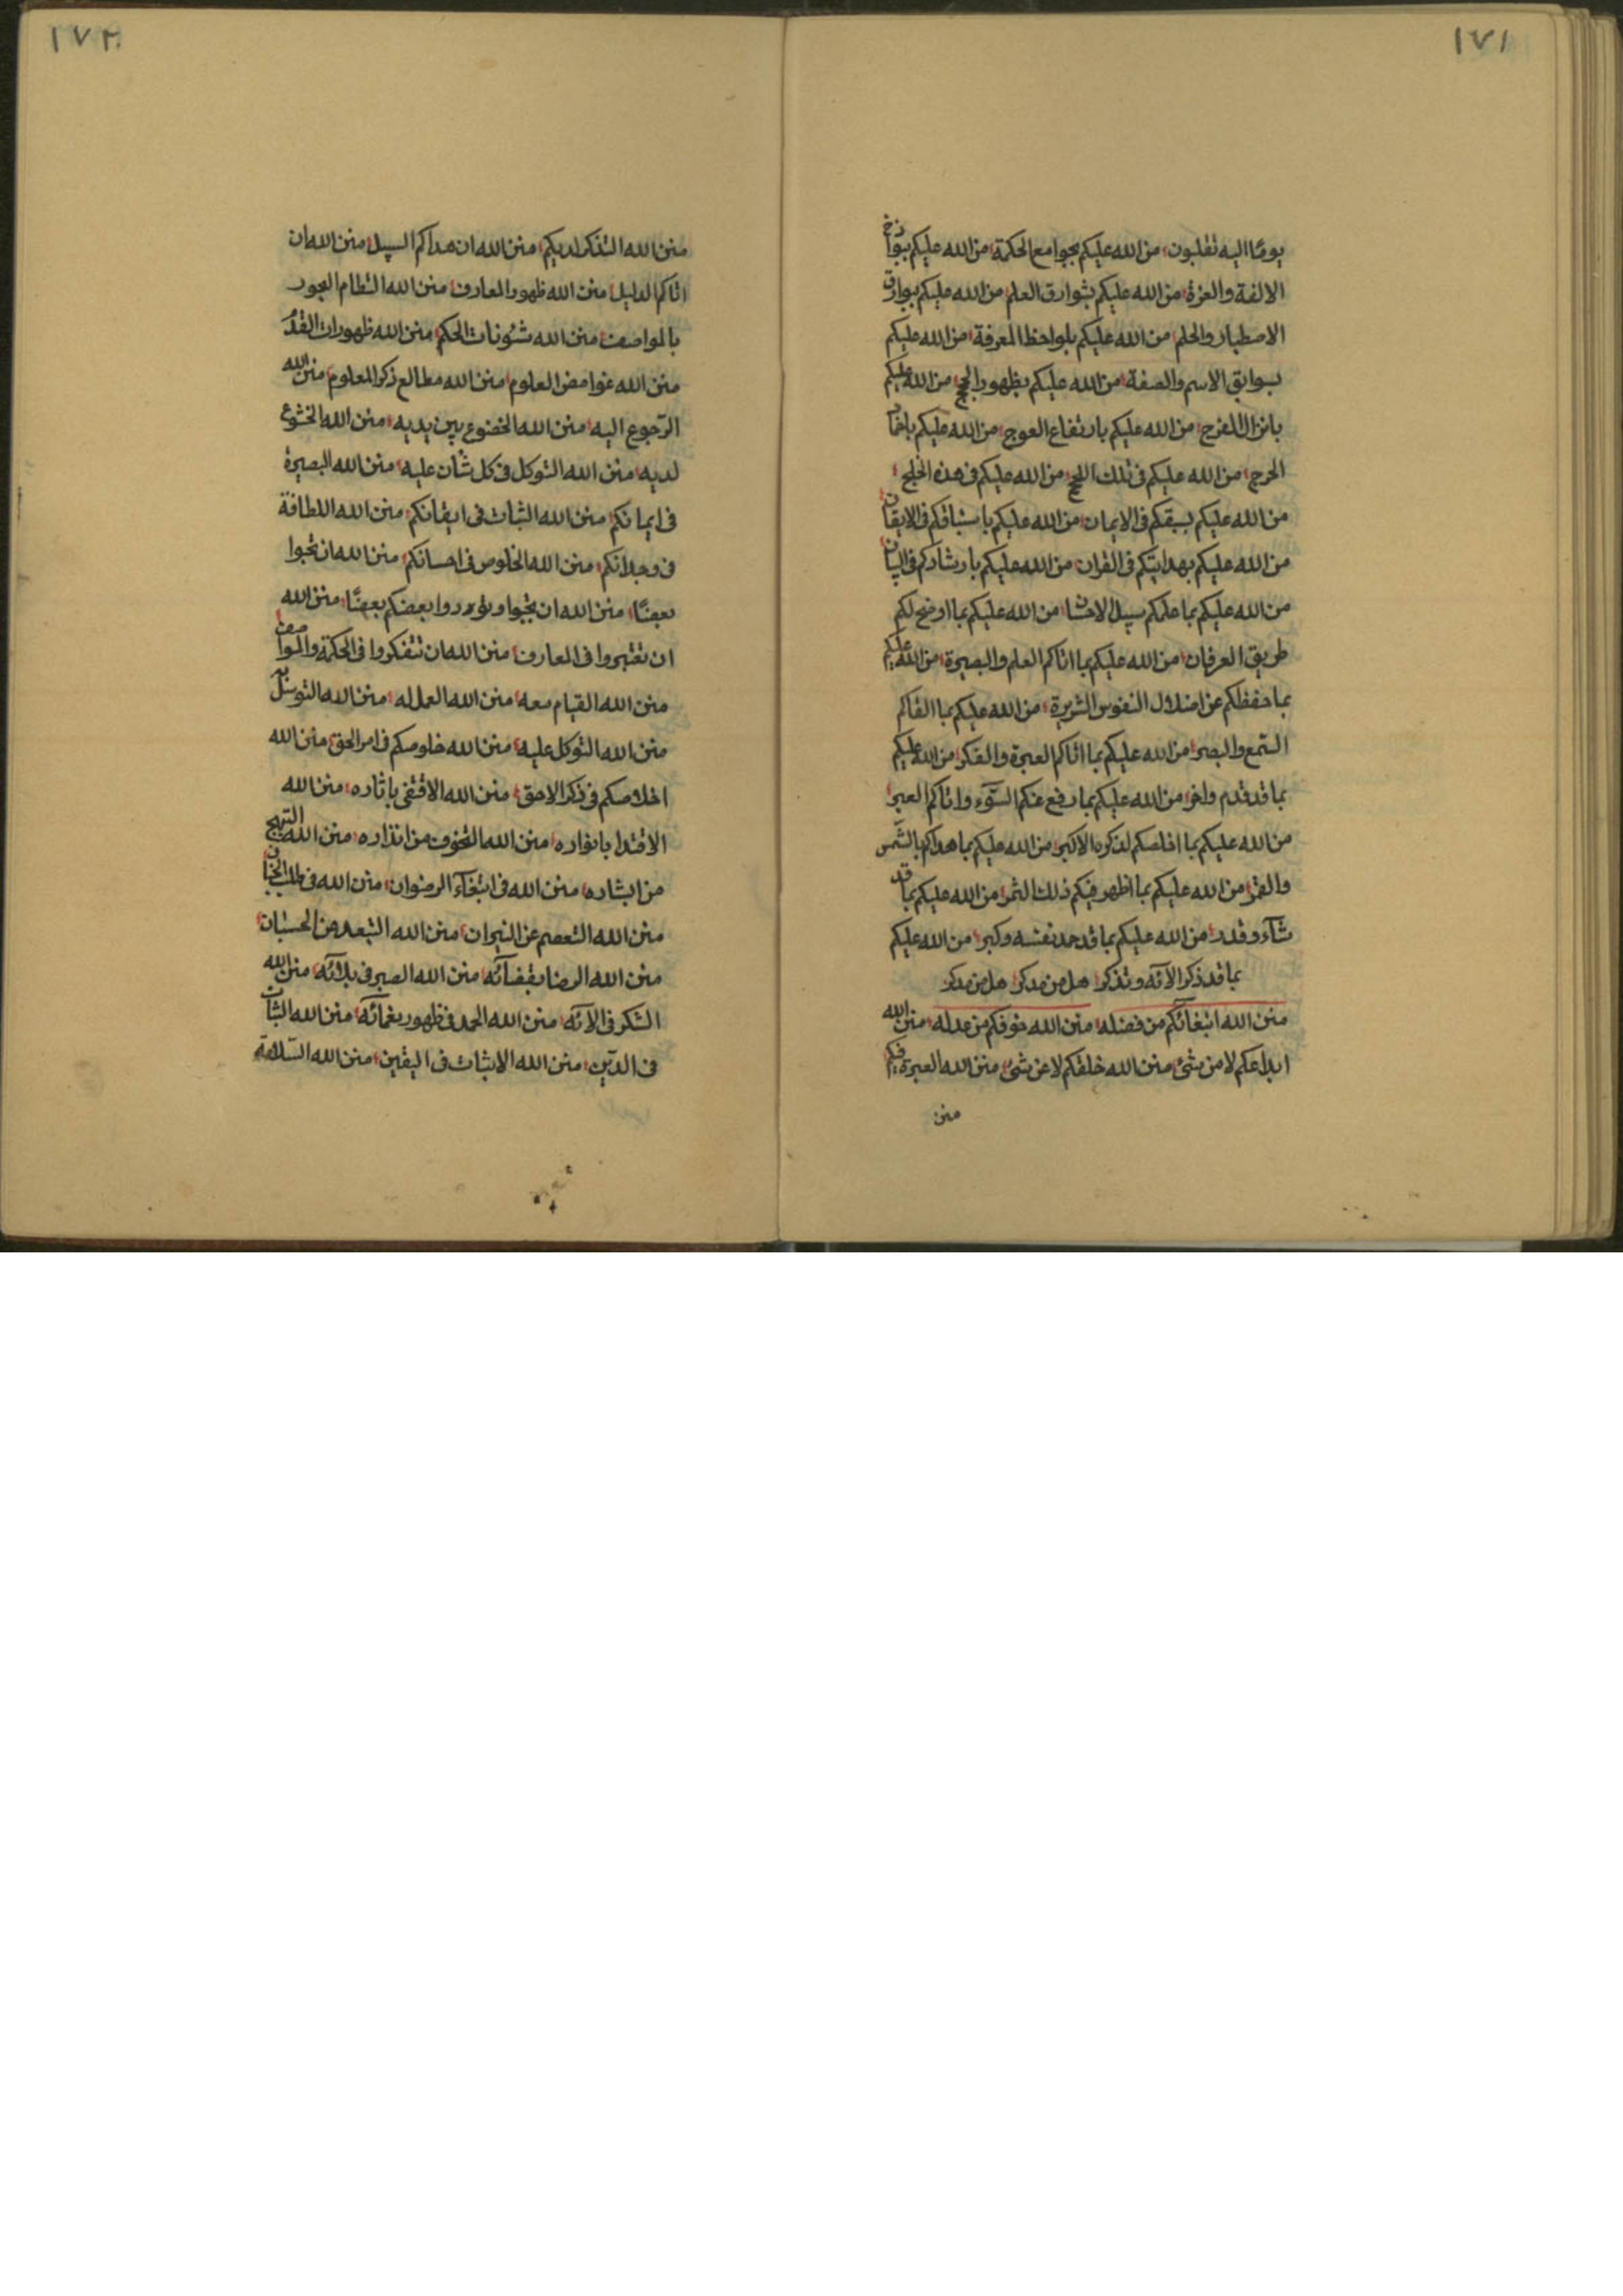 ١٧١
يومًا اليه تقلبون، من الله عليكم بجوامع الحكمة، من الله عليكم
الالفة والعزة، من الله عليكم بشوارق العلم، من الله عليكم ببوارق
الاصطبار والحلم، من الله عليكم بلواحظ المعرفة، من الله عليكم
بسوابق الاسم والصفة، من الله عليكم بظهور الحجج، من الله عليكم
من الله عليكم بارتفاع العوج، من الله عليكم
الحرج، من الله عليكم فى تلك اللجج، من الله عليكم فى هذه الخلج،
من الله عليكم بسبقكم فى الايمان، من الله عليكم باستباقكم فى الايقان،
من الله عليكم بهدايتكم فى القران، من الله عليكم بارشادكم فى البيان،
من الله عليكم بما علمكم سبيل من الله عليكم بما اوضح لكم
طريق العرفان، من الله عليكم بما اتاكم العلم والبصيرة، من الله عليكم
بما حفظكم عن اضلال النفوس الشريرة، من الله عليكم بما
السّمع والبصر، من الله عليكم بما اتاكم العبرة والفكر، من الله عليكم
بما قد قدم واخر، من الله عليكم بما رفع عنكم السّوٓء واتاكم العبر،
من الله عليكم بما اخلصكم لذكره الاكبر، من الله عليكم بما هداكم بالشّمس
والقمر، من الله عليكم بما اظهر فيكم ذلك الثمر، من الله عليكم بما قد
شآء وقدر، من الله عليكم بما قد حمد نفسه وكبر، من الله عليكم
بما قد ذكر الآئه وتذكر، هل من مدكر، هل من مدكر
منن الله ابتغائكم من فضله، منن الله خوفكم من عدله، منن الله
ابداعكم لا من شئ، منن الله خلقكم لا عن شئ، منن الله العبرة فيكم،
منن
١٧٢
منن الله التذكر لديكم، منن الله ان هداكم السبيل، منن الله ان
اتاكم الدليل، منن الله ظهور المعارف، منن الله
بالمواصف، منن الله شئونات الحكم، منن الله ظهورات القدم،
منن الله غوامض العلوم، منن الله مطالع ذكر المعلوم، منن الله
الرّجوع اليه، منن الله الخضوع بين يديه، منن الله الخشوع
لديه، منن الله التوكل فى كل شأن عليه، منن الله البصيرة
فى ايمانكم، منن الله الثبات فى ايقانكم، منن الله اللطافة
فى وجدانكم، منن الله الخلوص فى احسانكم، منن الله ان تحبوا
بعضًا، منن الله ان تحبوا بعضكم بعضًا، منن الله
ان تعتبروا فى المعارف، منن الله ان تتفكروا فى الحكمة والمواصف،
منن الله القيام معه، منن الله العمل له، منن الله التوسّل به
منن الله التوكل عليه، منن الله خلوصكم فى امر الحق، منن الله
اخلاصكم فى ذكر الاحق، منن الله الاقتفى باثاره، منن الله
الاقتدا بانواره، منن الله التخوف من انذاره، منن الله التبهج
من ابشاره، منن الله فى ابتغآء الرضوان، منن الله فى طلب الجنان،
منن الله التعصم عن النيران، منن الله التبعد عن الحسبان،
منن الله الرضا بقضآئه، منن الله الصبر فى بلائه، منن الله
الشكر فى الآئه، منن الله الحمد فى ظهور نعمآئه، منن الله الثبات
فى الدّين، منن الله الاثبات فى اليقين، منن الله السّلامة